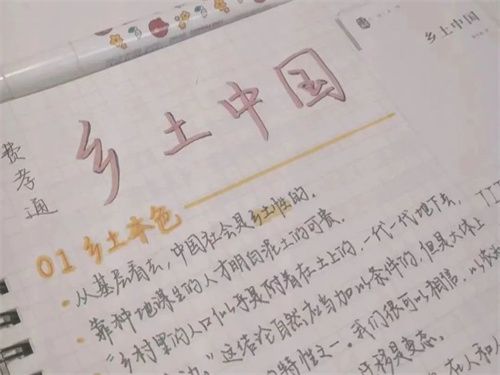 乡土中国
费孝通
乡土中国
01 乡土本色
· 从基层看去，中国社会是乡土性的。
· 靠种地谋生的人才明白泥土的可贵。
· "乡村里的人口似乎是附着在土上的，一代一代地下来，
这结论自然应当加以条件的，但是大体上
的特性之一。我们很可以相信，以农
迁移是变态。
在人和人